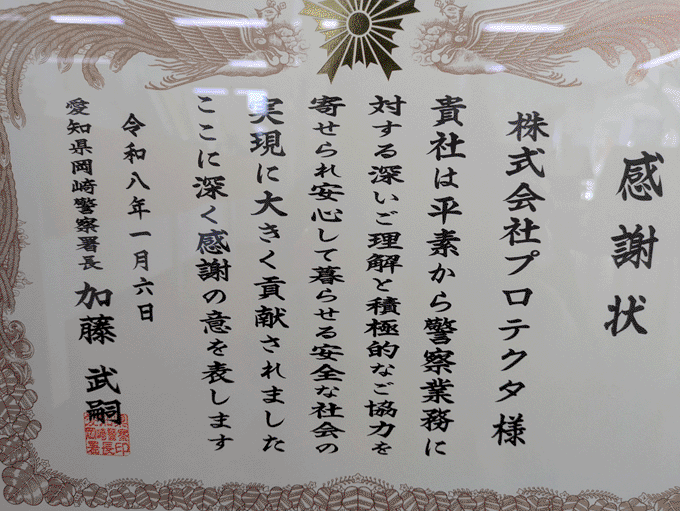 感謝状
株式会社プロテクタ様
貴社は平素から警察業務に
対する深いご理解と積極的なご協力を
寄せられ安心して暮らせる安全な社会の
実現に大きく貢献されました
ここに深く感謝の意を表します
令和八年一月六日
愛知県岡崎警察署長 加藤武嗣